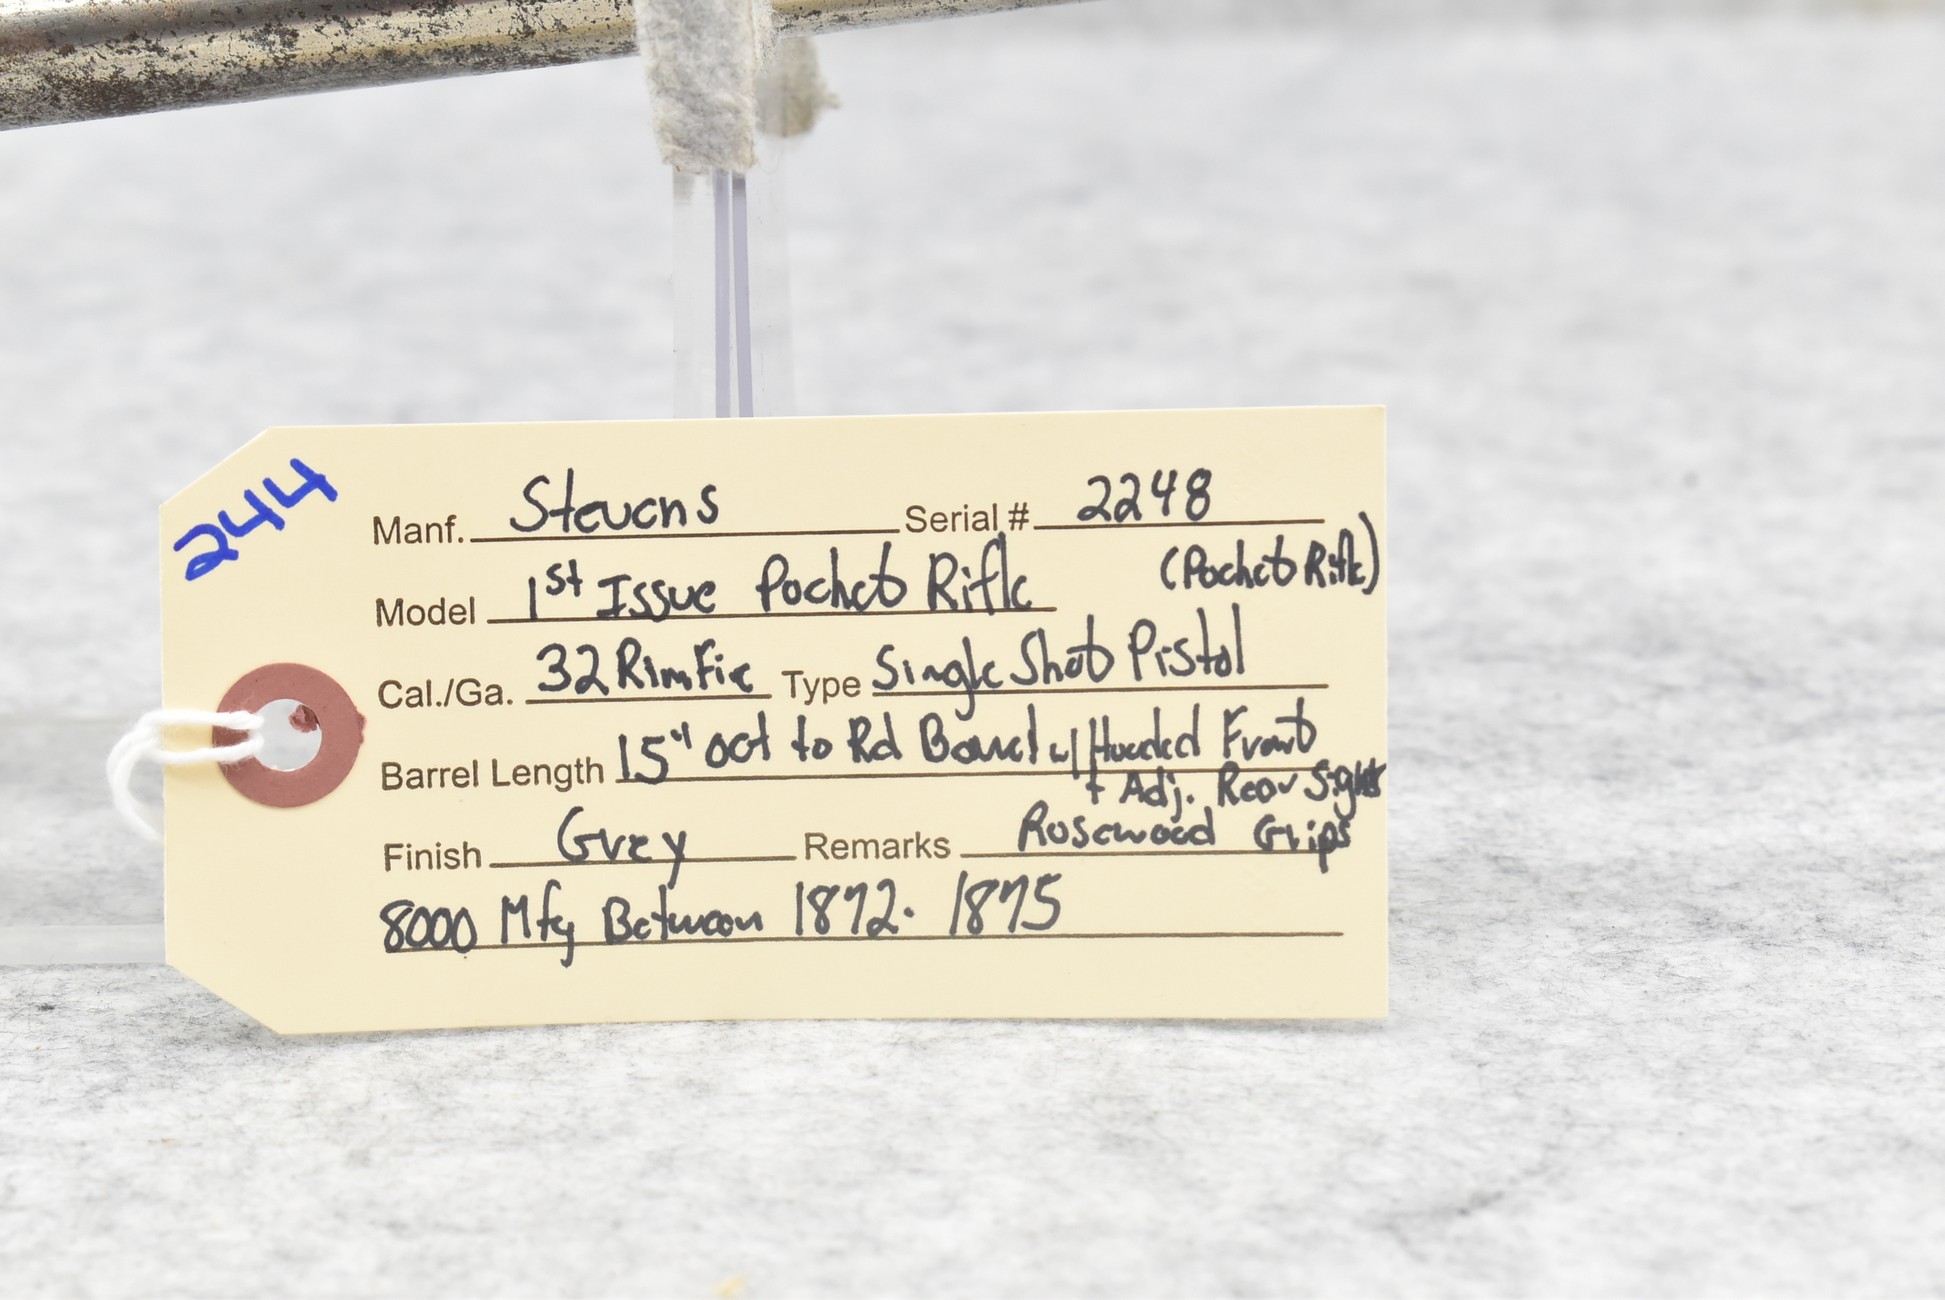 244
Manf. Stevens Serial # 2248
Model 1st Issue Pocket Rifle (Pocket Rifle)
Cal./Ga. 32 Rimfire Type Single Shot Pistol
Barrel Length 15" Oct to Rd Barrel w/ Hooded Front
+ Adj. Rear Sights
Finish Grey Remarks Rosewood Grips
8000 Mfg Between 1872-1875